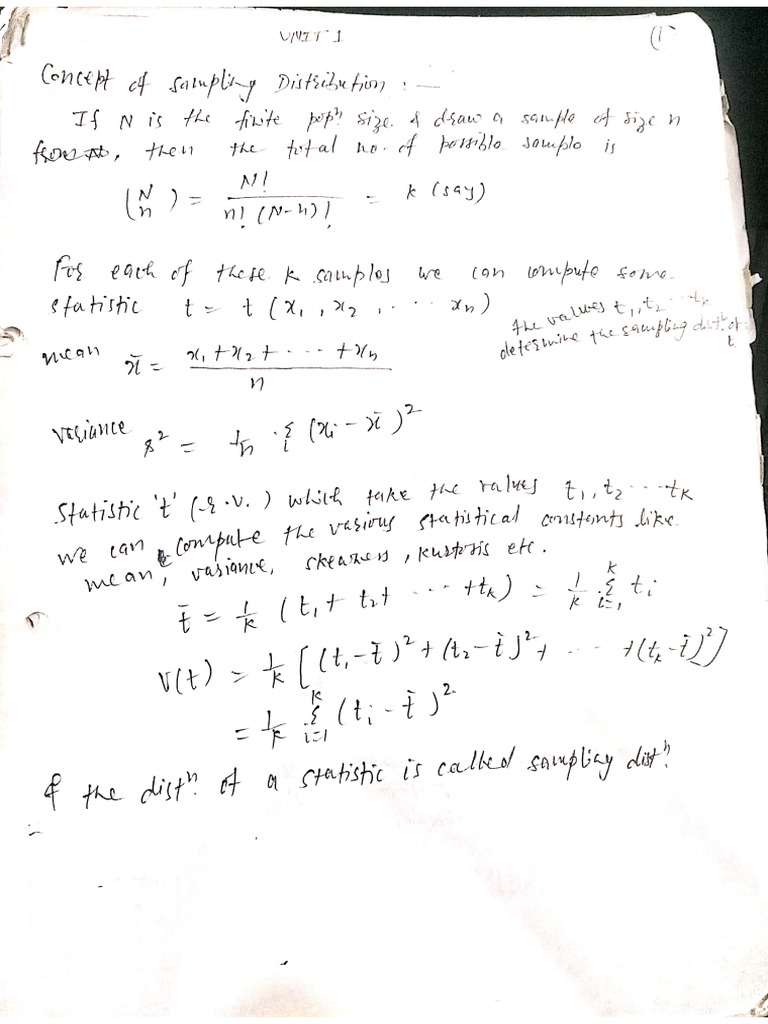 UNIT 1
(1)
Concept of Sampling Distribution : —
If N is the finite popⁿ size & draw a sample of size n
from N, then the total no. of possible sample is
(N n) = N! / n! (N-n)! = k (say)
For each of these k samples we can compute some
statistic t = t (x₁, x₂, . . . xₙ)
the values t₁, t₂ . . . tₖ
determine the sampling distⁿ. of
t
mean x̄ = x₁ + x₂ + . . . + xₙ / n
variance s² = 1/n Σᵢ (xᵢ - x̄)²
Statistic 't' (r.v.) which take the values t₁, t₂ . . . tₖ
we can compute the various statistical constants like
mean, variance, skewness, kurtosis etc.
t̄ = 1/k (t₁ + t₂ + . . . + tₖ) = 1/k Σᵢ₌₁ᵏ tᵢ
V(t) = 1/k [(t₁ - t̄)² + (t₂ - t̄)² + . . . + (tₖ - t̄)²]
= 1/k Σᵢ₌₁ᵏ (tᵢ - t̄)²
& the distⁿ. of a statistic is called sampling distⁿ.